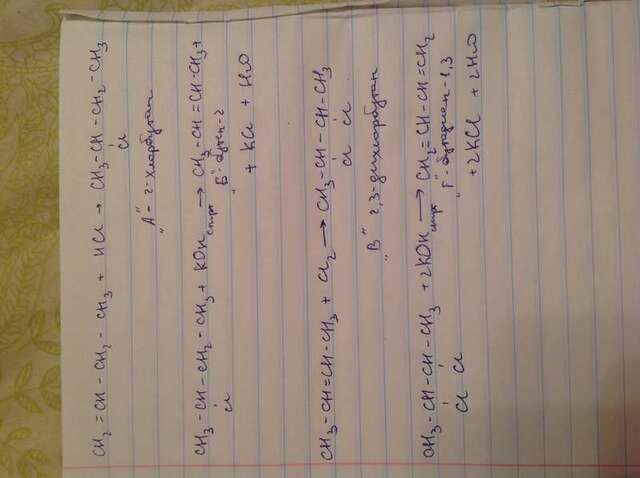 CH₂ = CH - CH₂ - CH₃ + HCl → CH₃-CH-CH₂-CH₃
Cl
"А" - 2-хлорбутан
CH₃ - CH - CH₂ - CH₃ + KOH спирт → CH₃ - CH = CH-CH₃ +
Cl
"Б" - бутен-2
+ KCl + H₂O
CH₃ - CH = CH - CH₃ + Cl₂ → CH₃ - CH - CH - CH₃
Cl Cl
"В" 2,3-дихлорбутан
CH₃ - CH - CH - CH₃ + 2KOH спирт → CH₂ = CH - CH = CH₂
Cl Cl
"Г" - бутадиен-1,3
+ 2KCl + 2H₂O